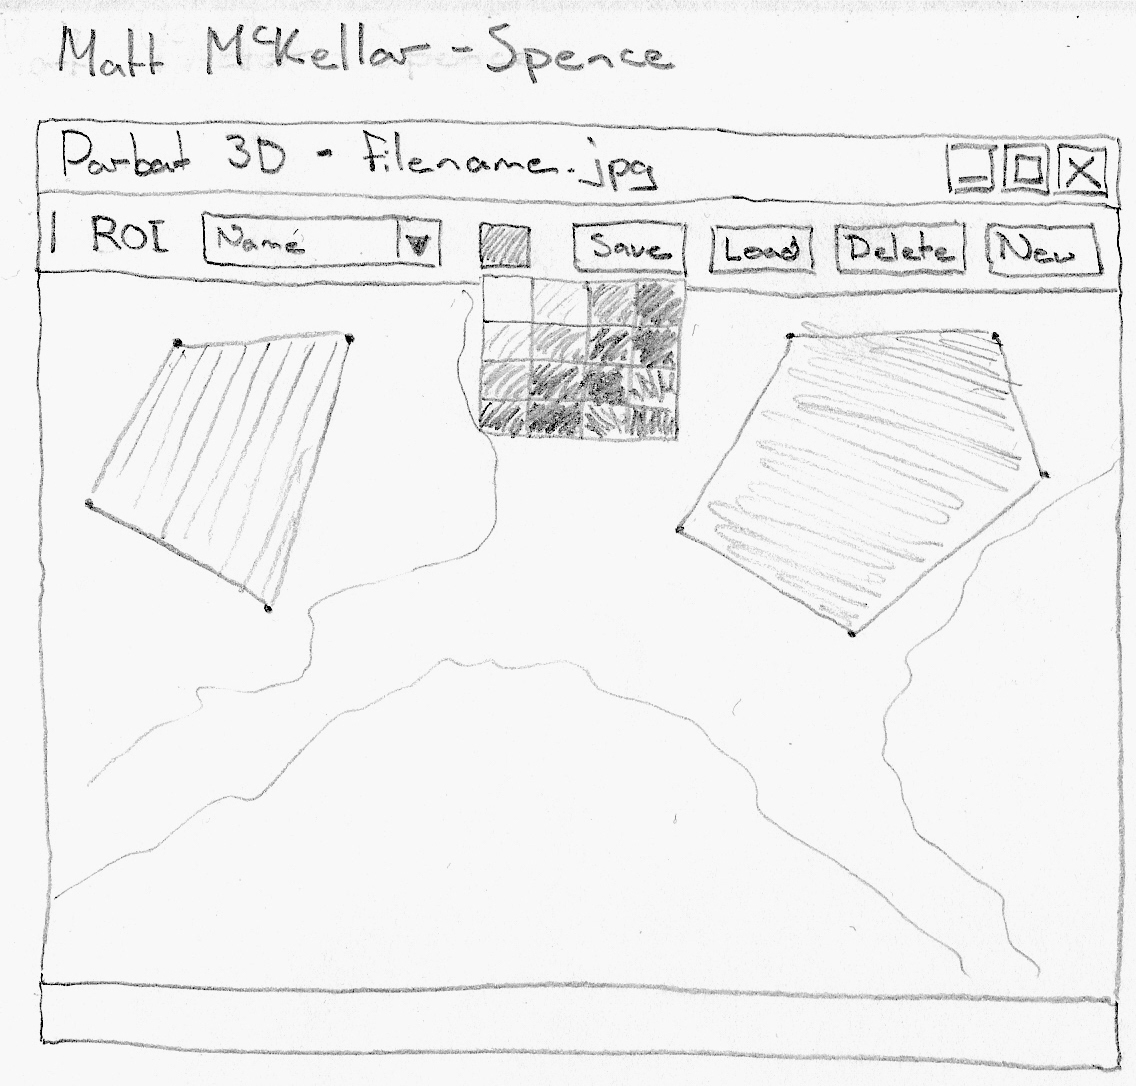 Matt McKellar-Spence
Parbat 3D - Filename.jpg
ROI Name Save Load Delete New